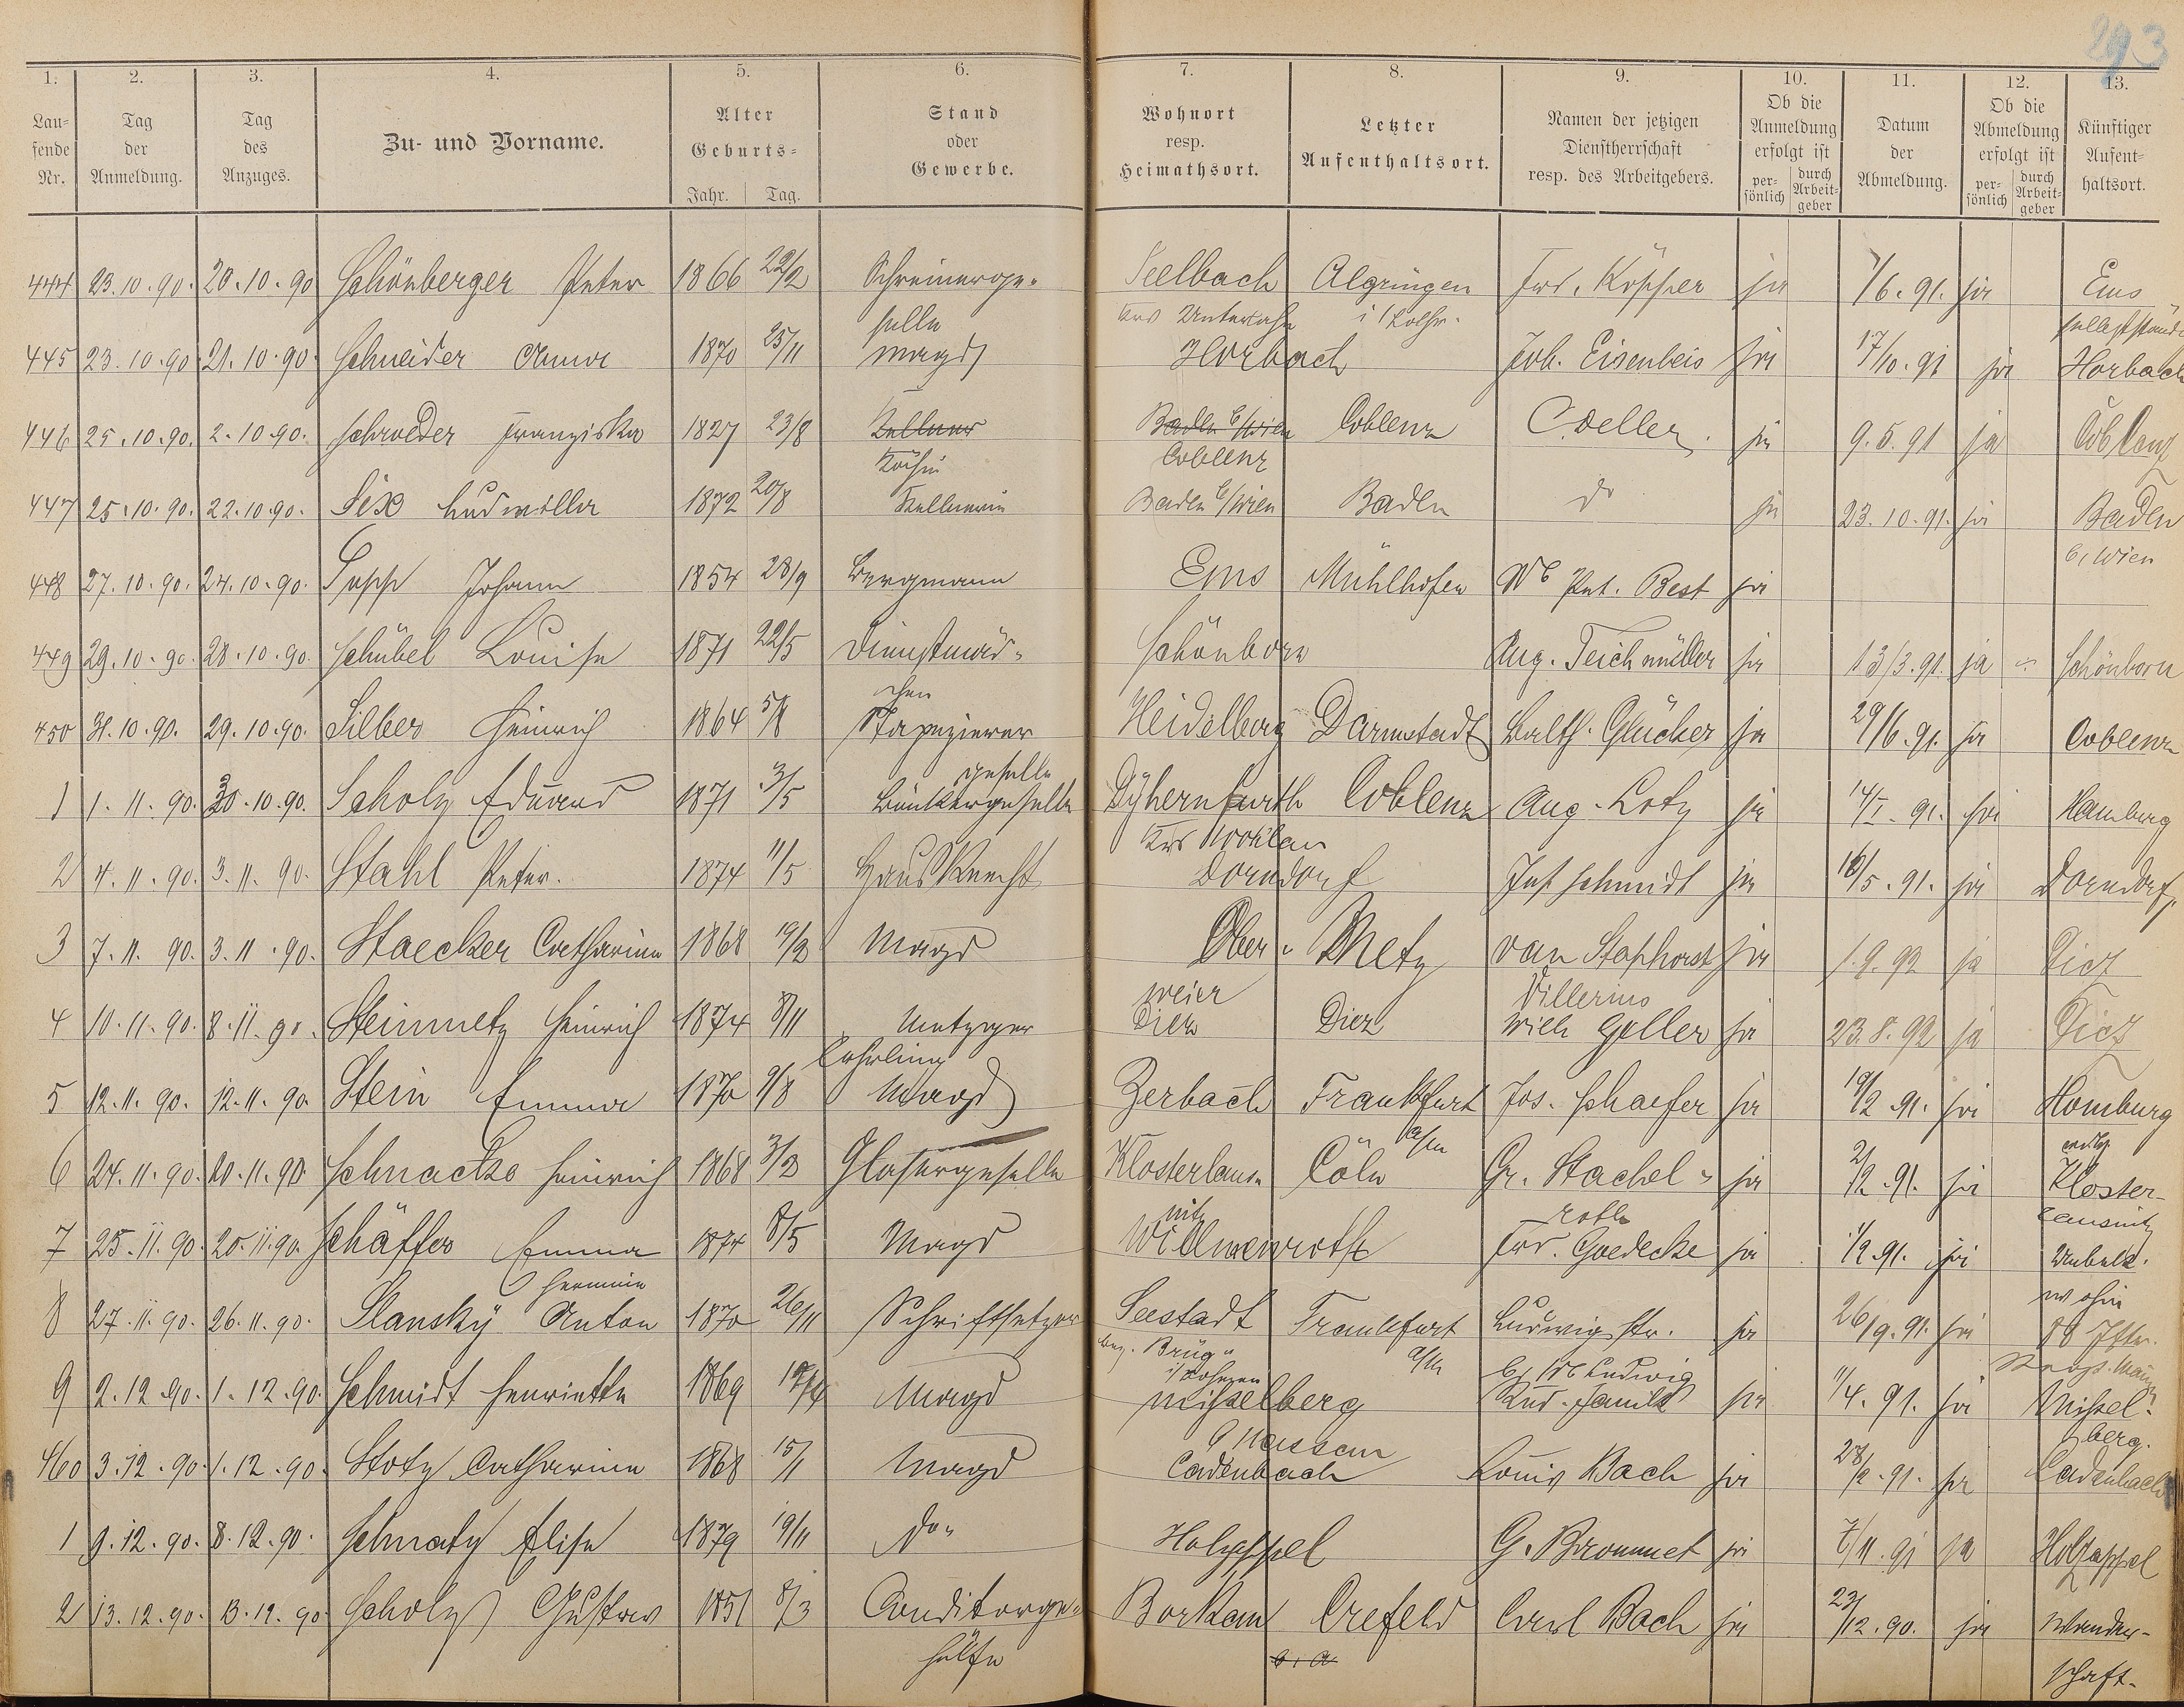 293
1. 2. 3. 4. 5. 6. 7. 8. 9. 10. 11. 12. 13.
Lau-
fende
Nr.
Tag
der
Anmeldung.
Tag
des
Anzuges.
Zu- und Vorname.
Alter
Geburts-
Jahr. Tag.
Stand
oder
Gewerbe.
Wohnort
resp.
Heimathsort.
Letzter
Aufenthaltsort.
Namen der jetzigen
Dienstherrschaft
resp. des Arbeitgebers.
Ob die
Anmeldung
erfolgt ist
per-
sönlich
durch
Arbeit-
geber
Datum
der
Abmeldung.
Ob die
Abmeldung
erfolgt ist
per-
sönlich
durch
Arbeit-
geber
Künftiger
Aufent-
haltsort.
444 23.10.90. 20.10.90 Schönberger Peter 1866 22/2 Schreinerge- Seelbach Algringen Frd. Köpper ja 7/6.91. ja Ems
selle Krs Unterlahn i/Lothr.
445 23.10.90 21.10.90. Schneider Anna 1870 25/11 Magd Horbach Joh. Eisenbeis ja 17/10.91 ja Horbach
446 25.10.90. 2.10.90. Schroeder Franziska 1827 23/8 Kellner Baden b/Wien Coblenz C. Deller. ja 9.5.91 ja Coblenz
Köchin Coblenz
447 25.10.90. 22.10.90. Six Ludmilla 1872 20/8 Kellnerin Baden b/Wien Baden do ja 23.10.91. ja Baden
b/Wien
448 27.10.90. 24.10.90. Sepp Johann 1854 28/9 Bergmann Ems Mühlhofen We Pet. Best ja
449 29.10.90. 28.10.90. Schübel Louise 1871 22/5 Dienstmäd- Schönborn Aug. Teichmüller ja 13/3.91. ja Schönborn
chen
450 31.10.90. 29.10.90. Silber Heinrich 1864 Tapezierer Heidelberg Darmstadt Balth. Glücker ja 29/6.91. ja Coblenz
geselle
1 1.11.90. 30.10.90. Scholz Eduard 1871 3/5 Dyhernfurth Coblenz Aug. Lotz ja 14/I.91. ja Hamburg
Krs Wohlau
2 4.11.90. 3.11.90. Stahl Peter. 1874 11/5 Hausknecht Dorndorf Jos Schmidt ja 16/5.91. ja Dorndorf.
3 7.11.90. 3.11.90. Staecker Catharina 1868 19/2 Magd Ober- Metz van Staphorst ja 1.9.92 ja Diez
weier
4 10.11.90. 8.11.90. Steinmetz Heinrich 1874 8/11 Metzger Diez Diez Wilh Goller ja 23.8.92 ja Diez
Lehrling
5 12.11.90. 12.11.90. Stein Emma 1870 9/8 Magd Zerbach Frankfurt Jos. Schaefer ja 19/2.91. ja Homburg
a/M
6 24.11.90. 20.11.90 Schnacko Heinrich 1868 3/2 Glasergeselle Klosterlaus- Cöln Gr. Stachel- ja 2/2.91. ja Kloster-
nitz roth lausnitz
7 25.11.90. 20.11.90. Schäffer Emma 1874 8/5 Magd Willmenroth Frd. Goedecke ja 1/2.91. ja Unbek.
Hermine wohin
8 27.11.90. 26.11.90. Slansky Anton 1870 26/11 Schriftsetzer Seestadt Frankfurt Ludwigstr. ja 26/9.91. ja
Bez. Brüx a/M b/ We Ludwig
i/Böhmen
9 2.12.90. 1.12.90. Schmidt Henriette 1869 Magd Misselberg ja 1/4.91. ja Missel-
Nassau berg.
460 3.12.90. 1.12.90. Stotz Catharina 1868 15/1 Magd Cadenbach Louis Bach ja ja Cadenbach
1 9.12.90. 8.12.90. Schmatz Elise 1879 19/11 do Holzappel G. Brommet ja 7/11.91 ja Holzappel
2 13.12.90. 13.12.90 Scholz Gustav 1851 8/3 Conditorge- Borkam Crefeld Carl Bach ja 23/12.90. ja Wander-
hülfe schaft.